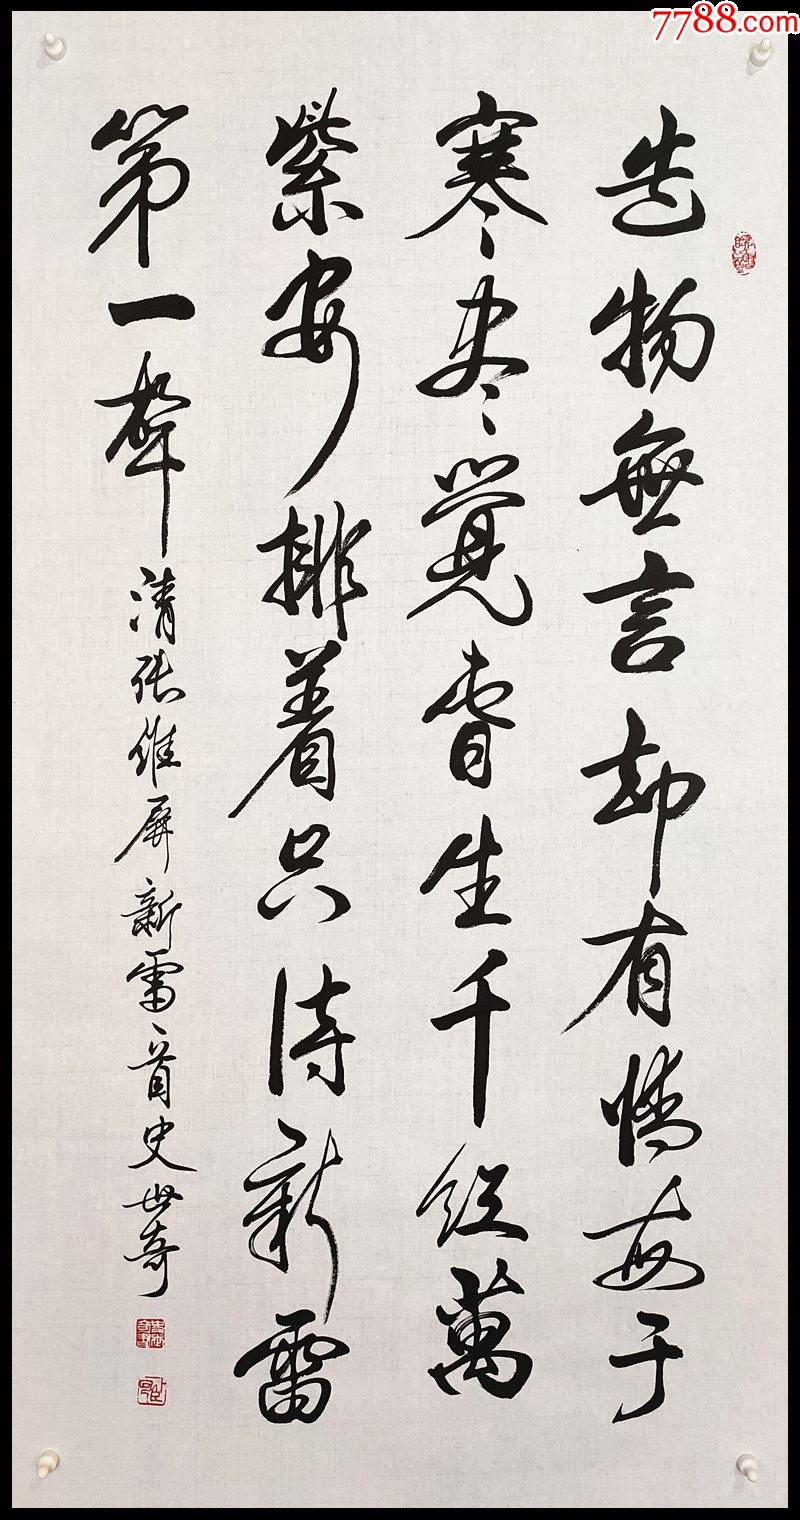 造物無言却有情每于
寒尽觉春生千红萬
紫安排着只待新雷
第一聲
清张维屏新雷一首史世奇
7788.com